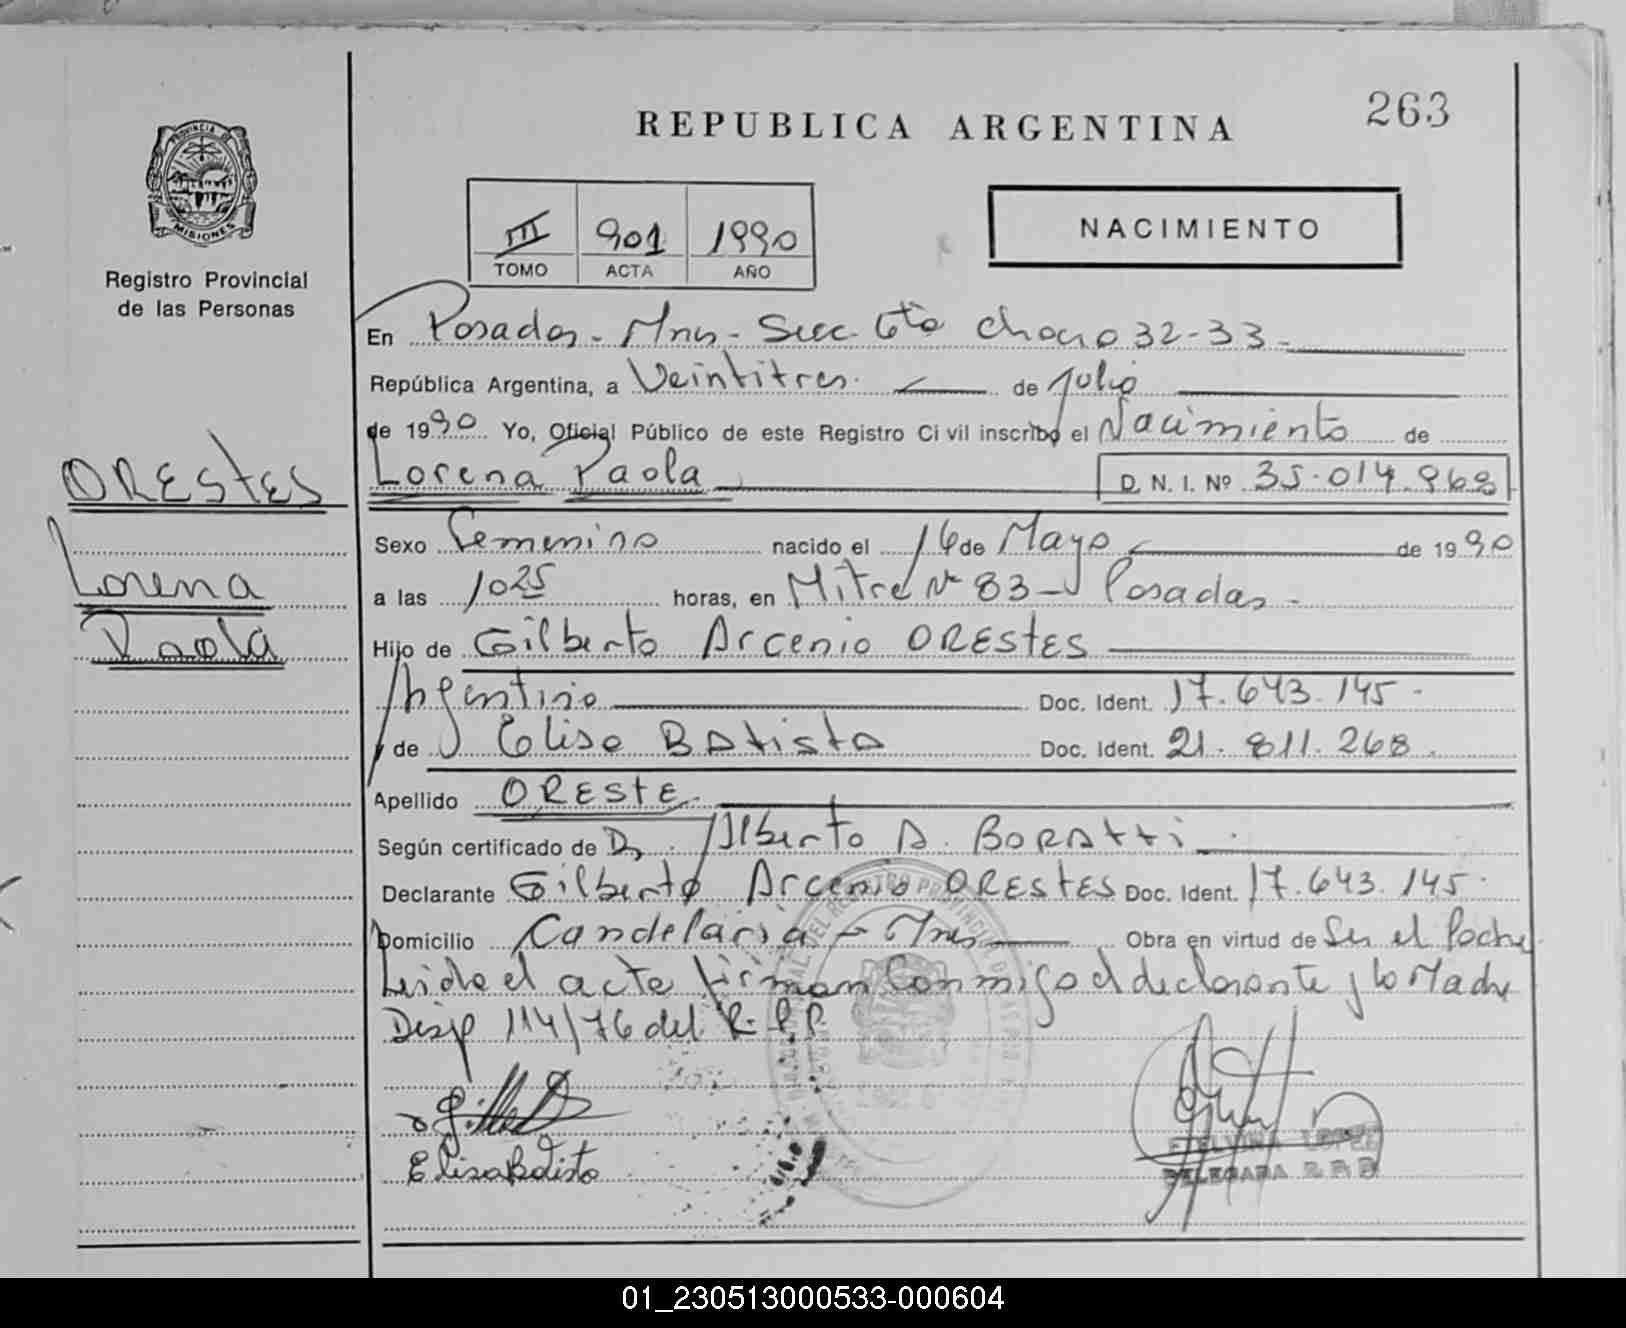 263
REPUBLICA ARGENTINA
PROVINCIA DE
MISIONES
Registro Provincial
de las Personas
III 901 1990
TOMO ACTA AÑO
NACIMIENTO
En Posadas - Mnes - Secc. 6ta Chaco 32-33 -
República Argentina, a Veintitres de Julio
de 1990 Yo, Oficial Público de este Registro Civil inscribo el Nacimiento de
Lorena Paola D. N. I. Nº 35.014.968
ORESTES
Lorena
Paola
Sexo Femenino nacido el 16 de Mayo de 1990
a las 1025 horas, en Mitre Nº 83 - Posadas -
Hijo de Gilberto Arcenio ORESTES
Argentino Doc. Ident. 17.643.145 -
y de Elisa Batista Doc. Ident. 21.811.268.
Apellido ORESTE
Según certificado de Dr. Alberto A. BORATTI
Declarante Gilberto Arcenio ORESTES Doc. Ident. 17.643.145 -
Domicilio Candelaria - Mnes Obra en virtud de Ser el Padre
Leida el acta firman Conmigo el declarante y la Madre
Disp 114/76 del R.P.P.
Elisa Batista
ETELVINA LOPEZ
DELEGADA
01_230513000533-000604